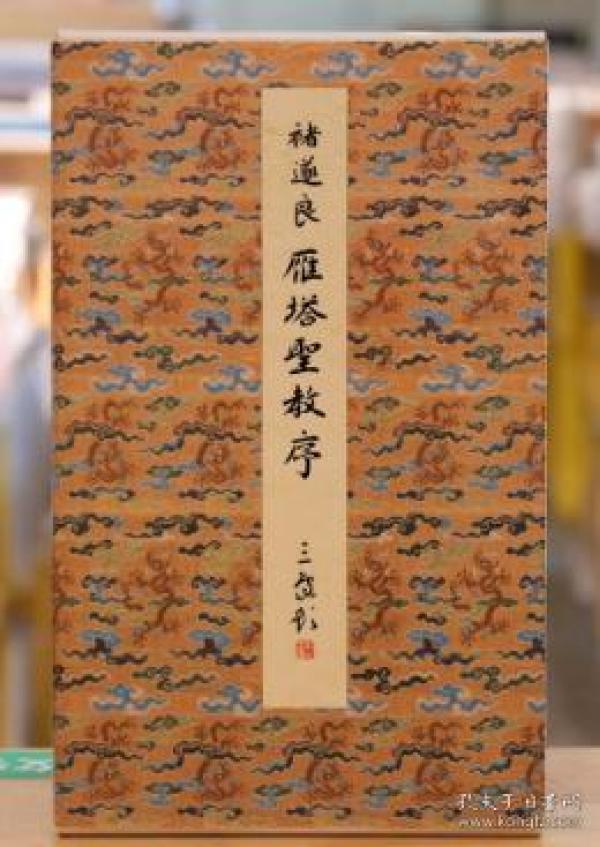 褚遂良 雁塔聖教序
孔夫子旧书网
www.kongfz.com